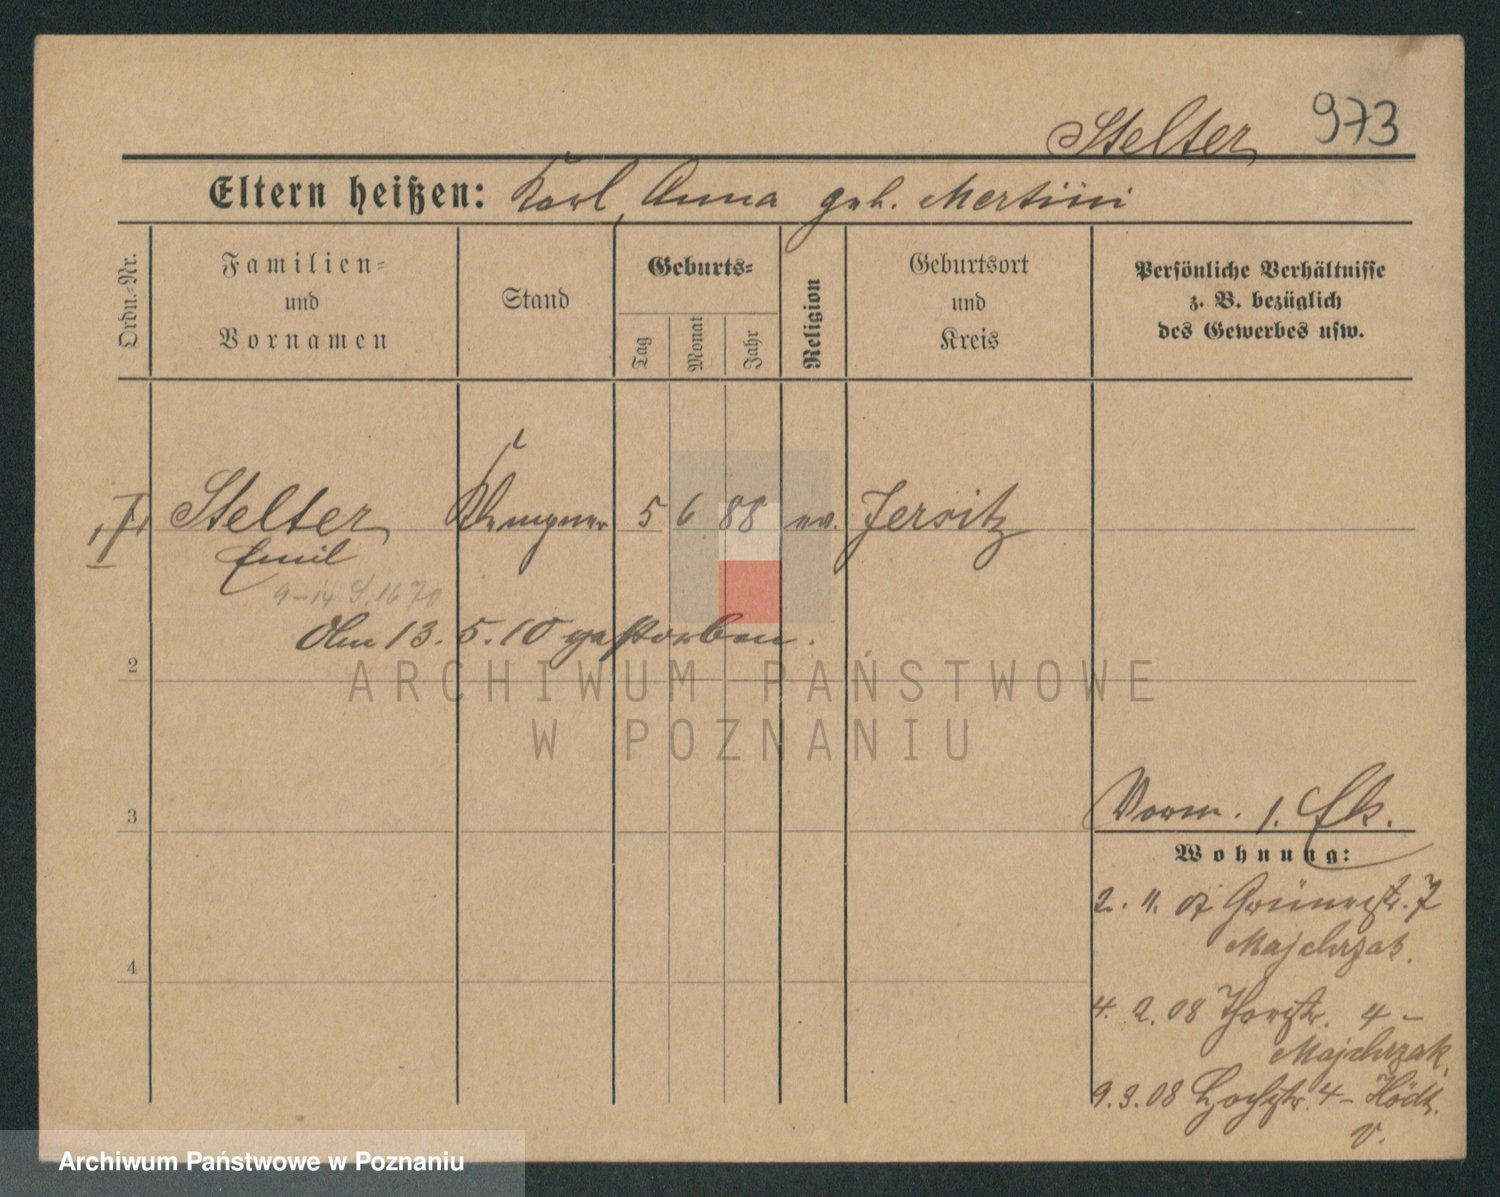 Stelter 973
Eltern heißen: Karl, Anna geb. Mertini
Ordn.-Nr.
Familien-
und
Vornamen
Stand
Geburts-
Tag
Monat
Jahr
Religion
Geburtsort
und
Kreis
Persönliche Verhältnisse
z. B. bezüglich
des Gewerbes usw.
Stelter Klempner 5 6 88 ev. Jersitz
Emil
9-14 S. 1670
Am 13. 5. 10 gestorben.
2
ARCHIWUM PAŃSTWOWE
W POZNANIU
3
Vorm. 1.
Wohnung:
2. 11. 07 Grünestr. 7
Majchrzak.
4
4. 2. 08 Thorstr. 4 -
Majchrzak
9. 3. 08 4 -
v.
Archiwum Państwowe w Poznaniu